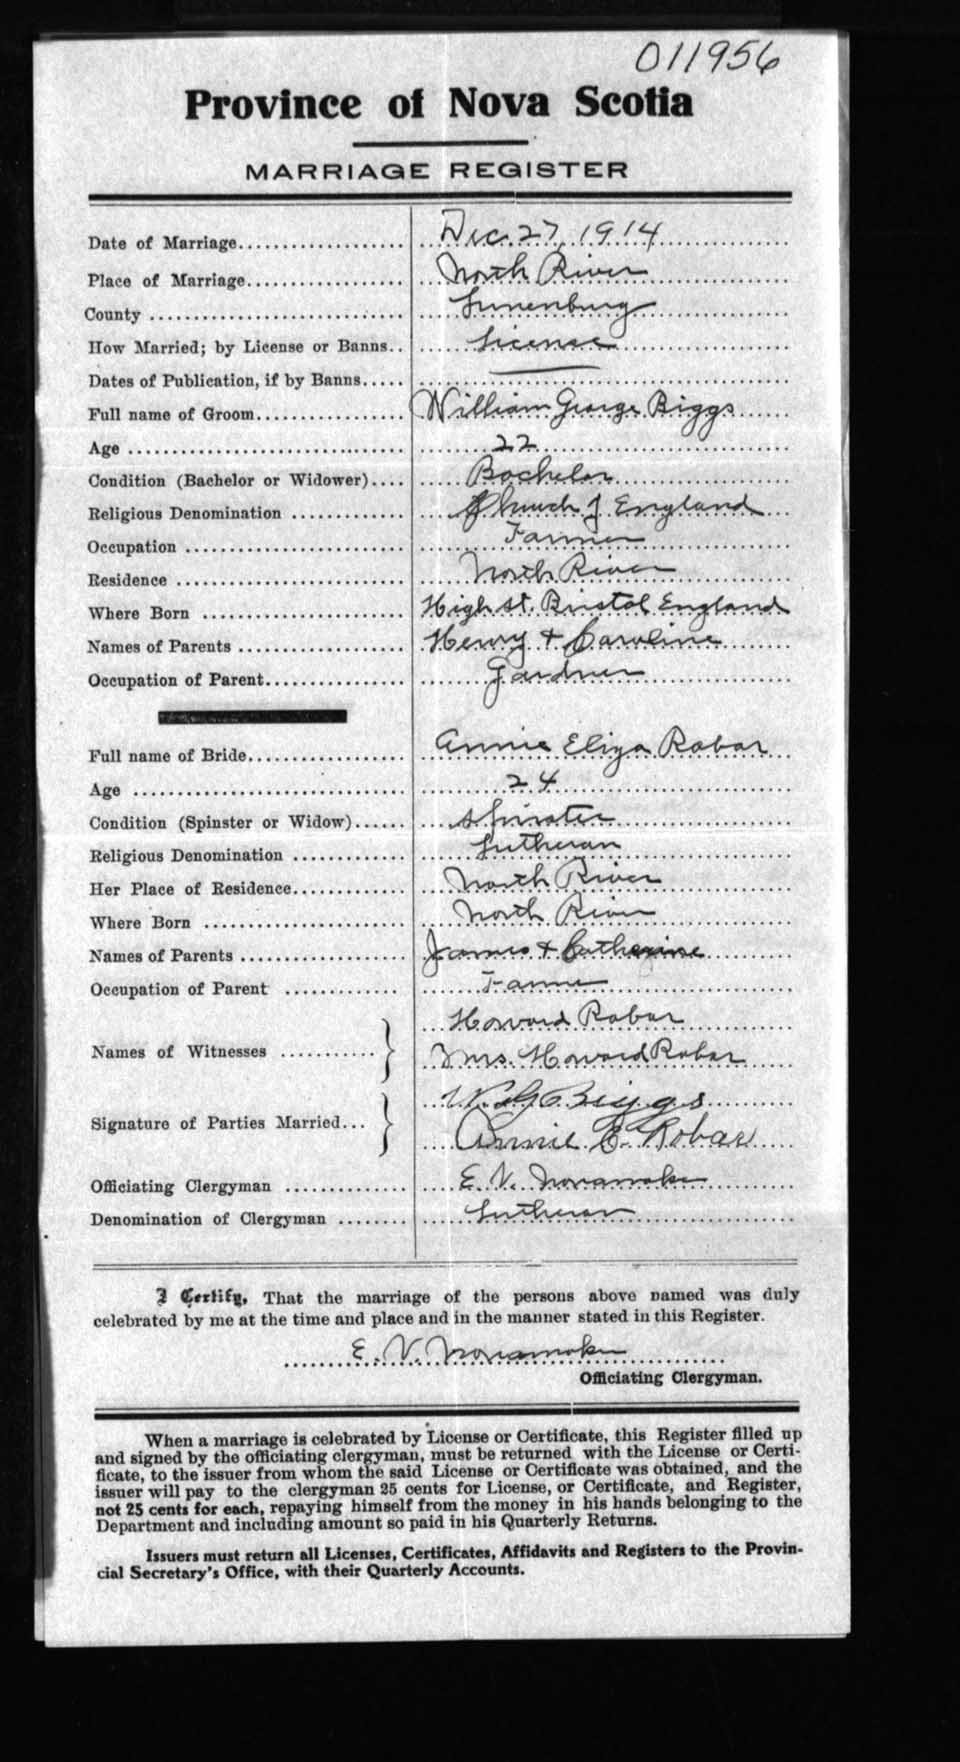 011956
Province of Nova Scotia
MARRIAGE REGISTER
Date of Marriage.................... Dec. 27, 1914
Place of Marriage................... North River
County ............................. Lunenburg
How Married; by License or Banns.. License
Dates of Publication, if by Banns.....
Full name of Groom.................. William George Biggs
Age ................................ 22
Condition (Bachelor or Widower).... Bachelor
Religious Denomination ............. Church of England
Occupation ......................... Farmer
Residence .......................... North River
Where Born ......................... High St. Bristol England
Names of Parents ................... Henry & Caroline
Occupation of Parent................ Gardner
Full name of Bride.................. Annie Eliza Robar
Age ................................ 24
Condition (Spinster or Widow)...... Spinster
Religious Denomination ............. Lutheran
Her Place of Residence............. North River
Where Born ......................... North River
Names of Parents ................... James & Catherine
Occupation of Parent ............... Farmer
Howard Robar
Names of Witnesses ........... Mrs. Howard Robar
W. G. Biggs
Signature of Parties Married... Annie E. Robar
Officiating Clergyman .............. E. V. Nonamaker
Denomination of Clergyman ........ Lutheran
I Certify, That the marriage of the persons above named was duly
celebrated by me at the time and place and in the manner stated in this Register.
E. V. Nonamaker
Officiating Clergyman.
When a marriage is celebrated by License or Certificate, this Register filled up
and signed by the officiating clergyman, must be returned with the License or Certi-
ficate, to the issuer from whom the said License or Certificate was obtained, and the
issuer will pay to the clergyman 25 cents for License, or Certificate, and Register,
not 25 cents for each, repaying himself from the money in his hands belonging to the
Department and including amount so paid in his Quarterly Returns.
Issuers must return all Licenses, Certificates, Affidavits and Registers to the Provin-
cial Secretary's Office, with their Quarterly Accounts.